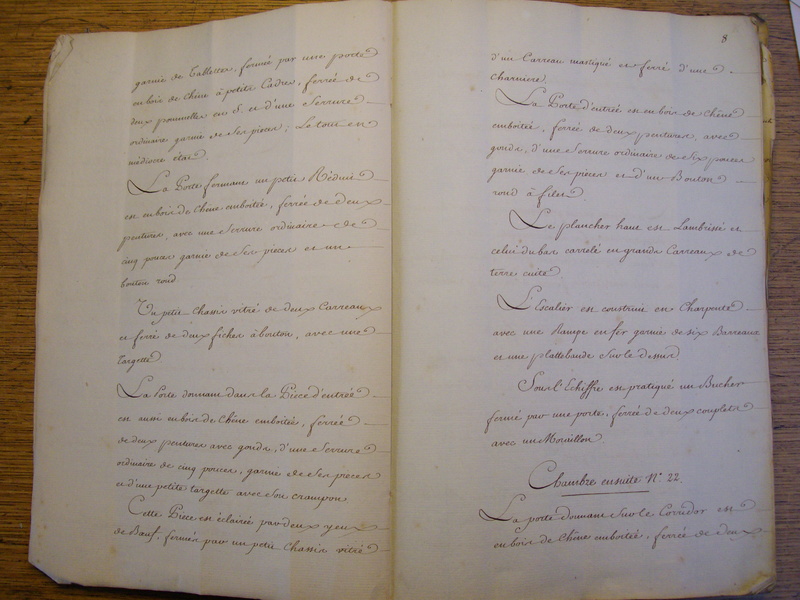 garnie de Tablettes, fermée par une porte
en bois de Chêne à petits Cadres, ferrée de
deux poummelles en S. et d'une Serrure
ordinaire garnie de Ses pieces; Le tout en
médiocre état.
La Porte fermant un petit Réduit
est en bois de Chêne emboitée, ferrée de deux
pentures, avec une Serrure ordinaire de
cinq pouces garnie de Ses pieces et un
bouton rond
Un petit Chassis vitré de deux Carreaux
et ferré de deux fiches à bouton, avec une
Targette
La Porte donnant dans la Pièce d'entrée
est aussi en bois de Chêne emboitée, ferrée
de deux pentures avec gonds, d'une Serrure
ordinaire de cinq pouces, garnie de Ses pieces
et d'une petite targette avec Son crampon.
Cette Pièce est éclairée par deux yeux
de Bœuf, fermés par un petit Chassis vitré
8
d'un Carreau mastiqué et ferré d'une
charniere.
La Porte d'entrée est en bois de Chêne
emboitée, ferrée de deux pentures, avec
gonds, d'une Serrure ordinaire de Six pouces
garnie de Ses pieces et d'un Bouton
rond à filet.
Le plancher haut est Lambrissé et
celui du bas carrelé en grands Carreaux de
terre cuite.
L'Escalier est construit en Charpente
avec une Rampe en fer garnie de six Barreaux
et une plattebande Sur le dessus.
Sous l'Echiffre est pratiqué un Bucher
fermé par une porte, ferrée de deux couplets
avec un Morillon.
Chambre ensuite N.° 22.
La porte donnant Sur le Corridor est
en bois de Chêne emboitée, ferrée de deux